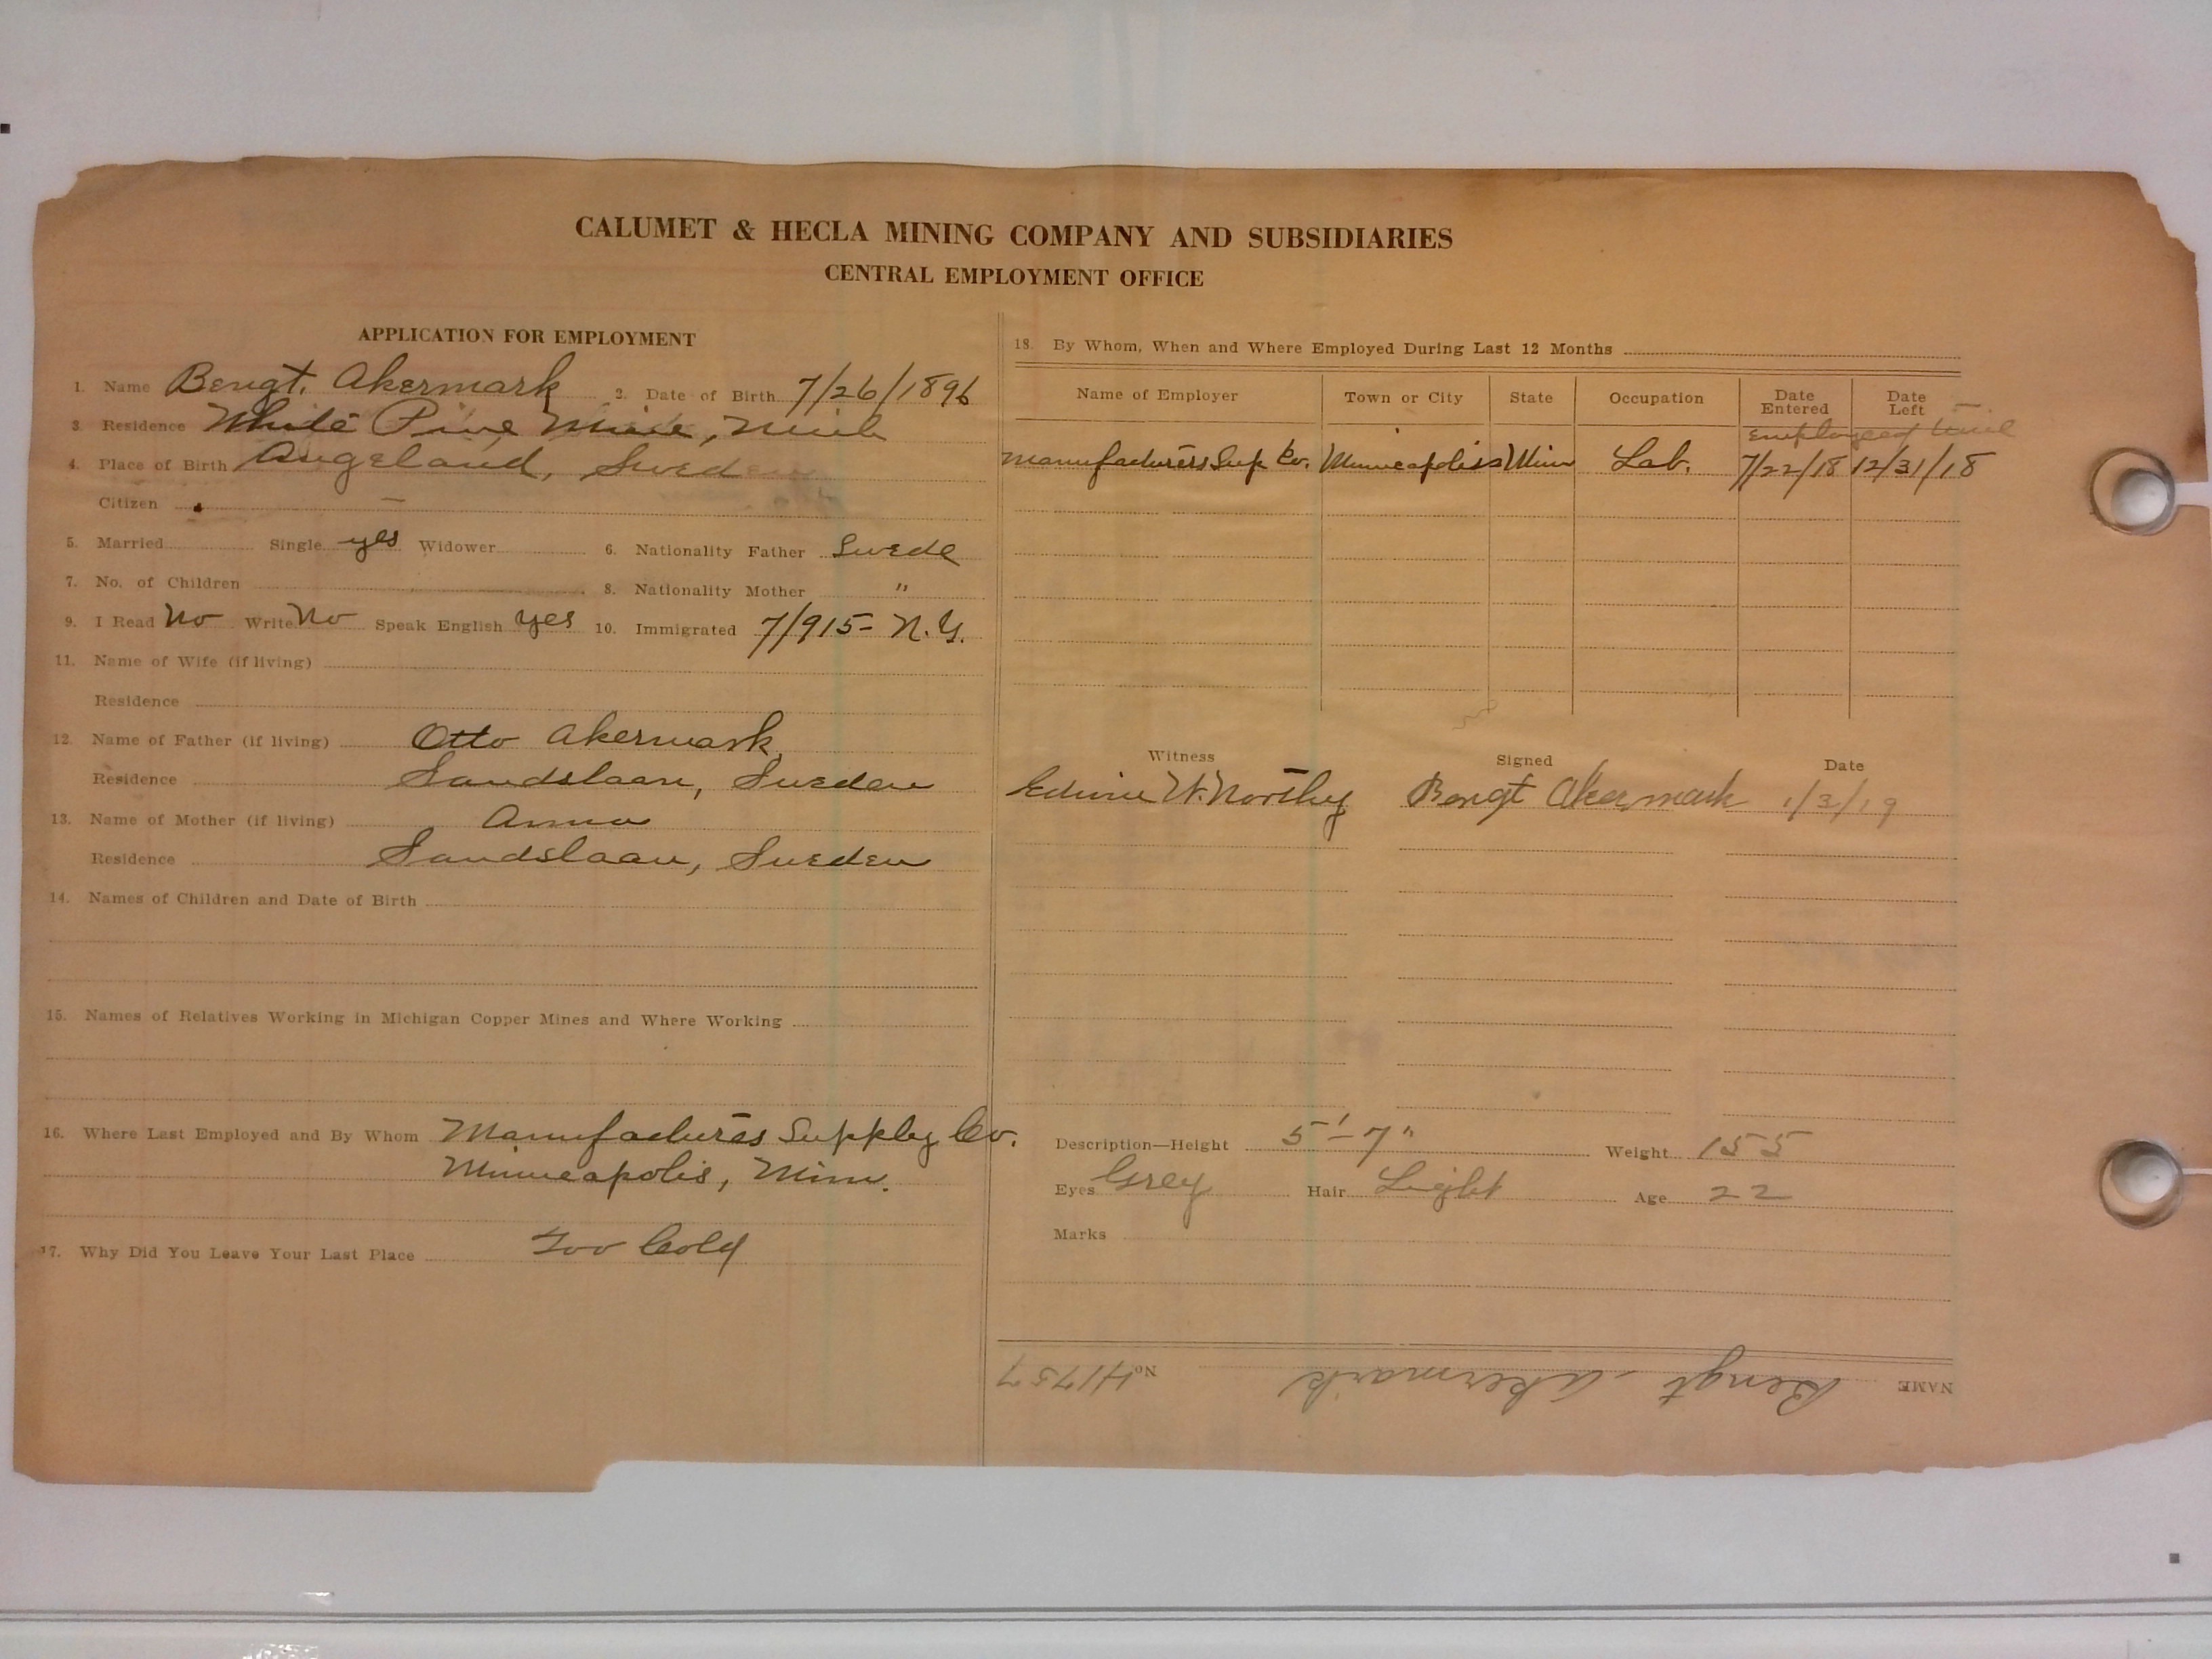 CALUMET & HECLA MINING COMPANY AND SUBSIDIARIES
CENTRAL EMPLOYMENT OFFICE
APPLICATION FOR EMPLOYMENT
1. Name Bengt. Akermark 2. Date of Birth 7/26/1896
3. Residence White Pine Mine, Mich
4. Place of Birth Angeland, Sweden
Citizen —
5. Married Single yes Widower 6. Nationality Father Swede
7. No. of Children 8. Nationality Mother "
9. I Read No Write No Speak English yes 10. Immigrated 7/915- N.Y.
11. Name of Wife (if living)
Residence
12. Name of Father (if living) Otto Akermark
Residence Sandslaan, Sweden
13. Name of Mother (if living) Anna
Residence Sandslaan, Sweden
14. Names of Children and Date of Birth
15. Names of Relatives Working in Michigan Copper Mines and Where Working
16. Where Last Employed and By Whom Manufacturers Supply Co.
Minneapolis, Minn.
17. Why Did You Leave Your Last Place Too Cold
18. By Whom, When and Where Employed During Last 12 Months
Name of Employer Town or City State Occupation Date Entered Date Left
Employed
Manufacturers Sup Co. Minneapolis Minn Lab. 7/22/18 12/31/18
Witness Signed Date
Edwin W. Northey Bengt Akermark 1/3/19
Description—Height 5'-7" Weight 155
Eyes Grey Hair Light Age 22
Marks
NAME Bengt Akermark No. H1757